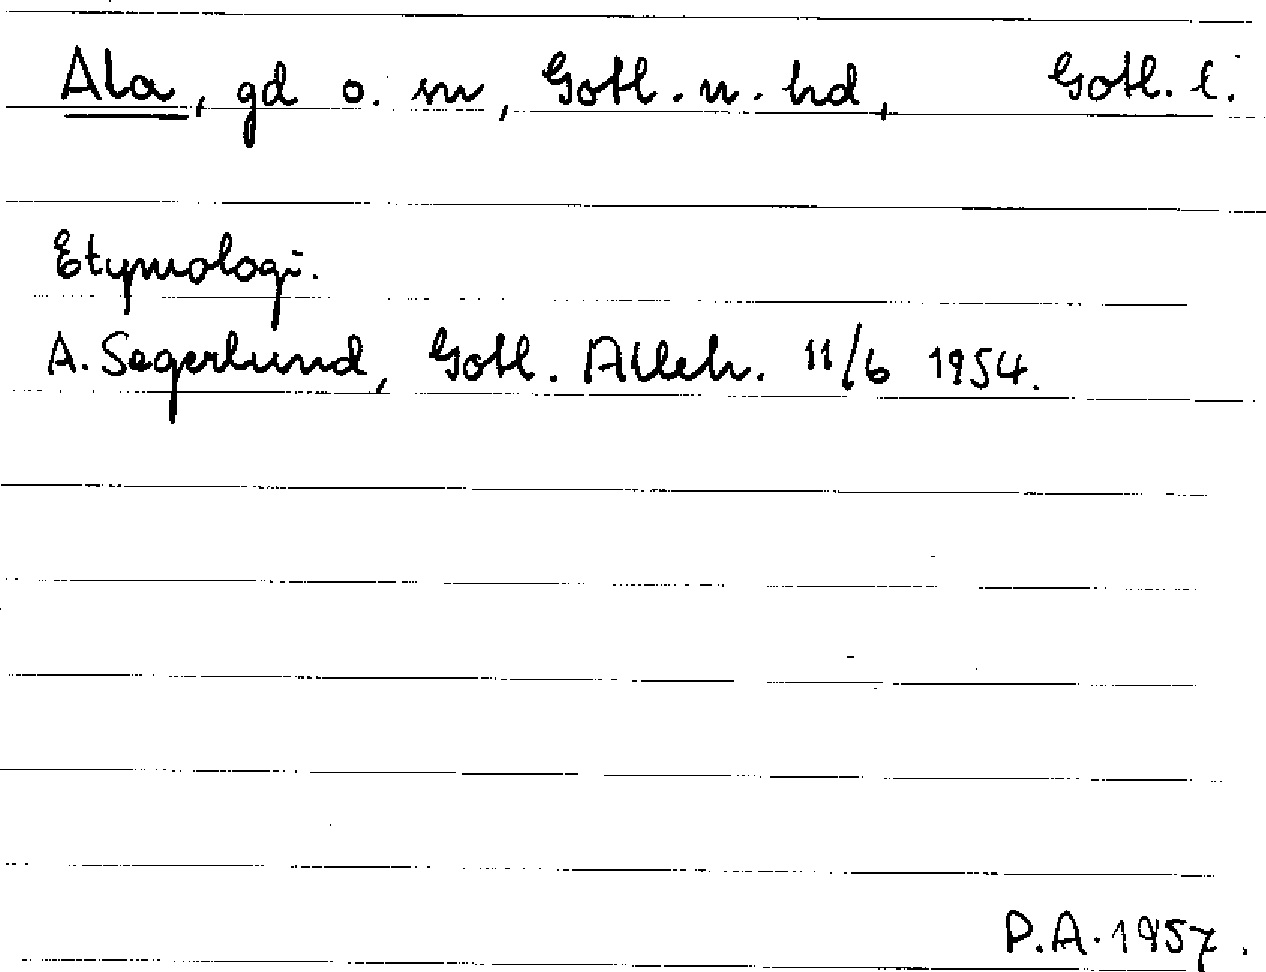 Ala, gd o. sn, Gotl. n. hd, Gotl. l.
Etymologi.
A. Segerlund, Gotl. Alleh. 11/6 1954.
P.A. 1957.